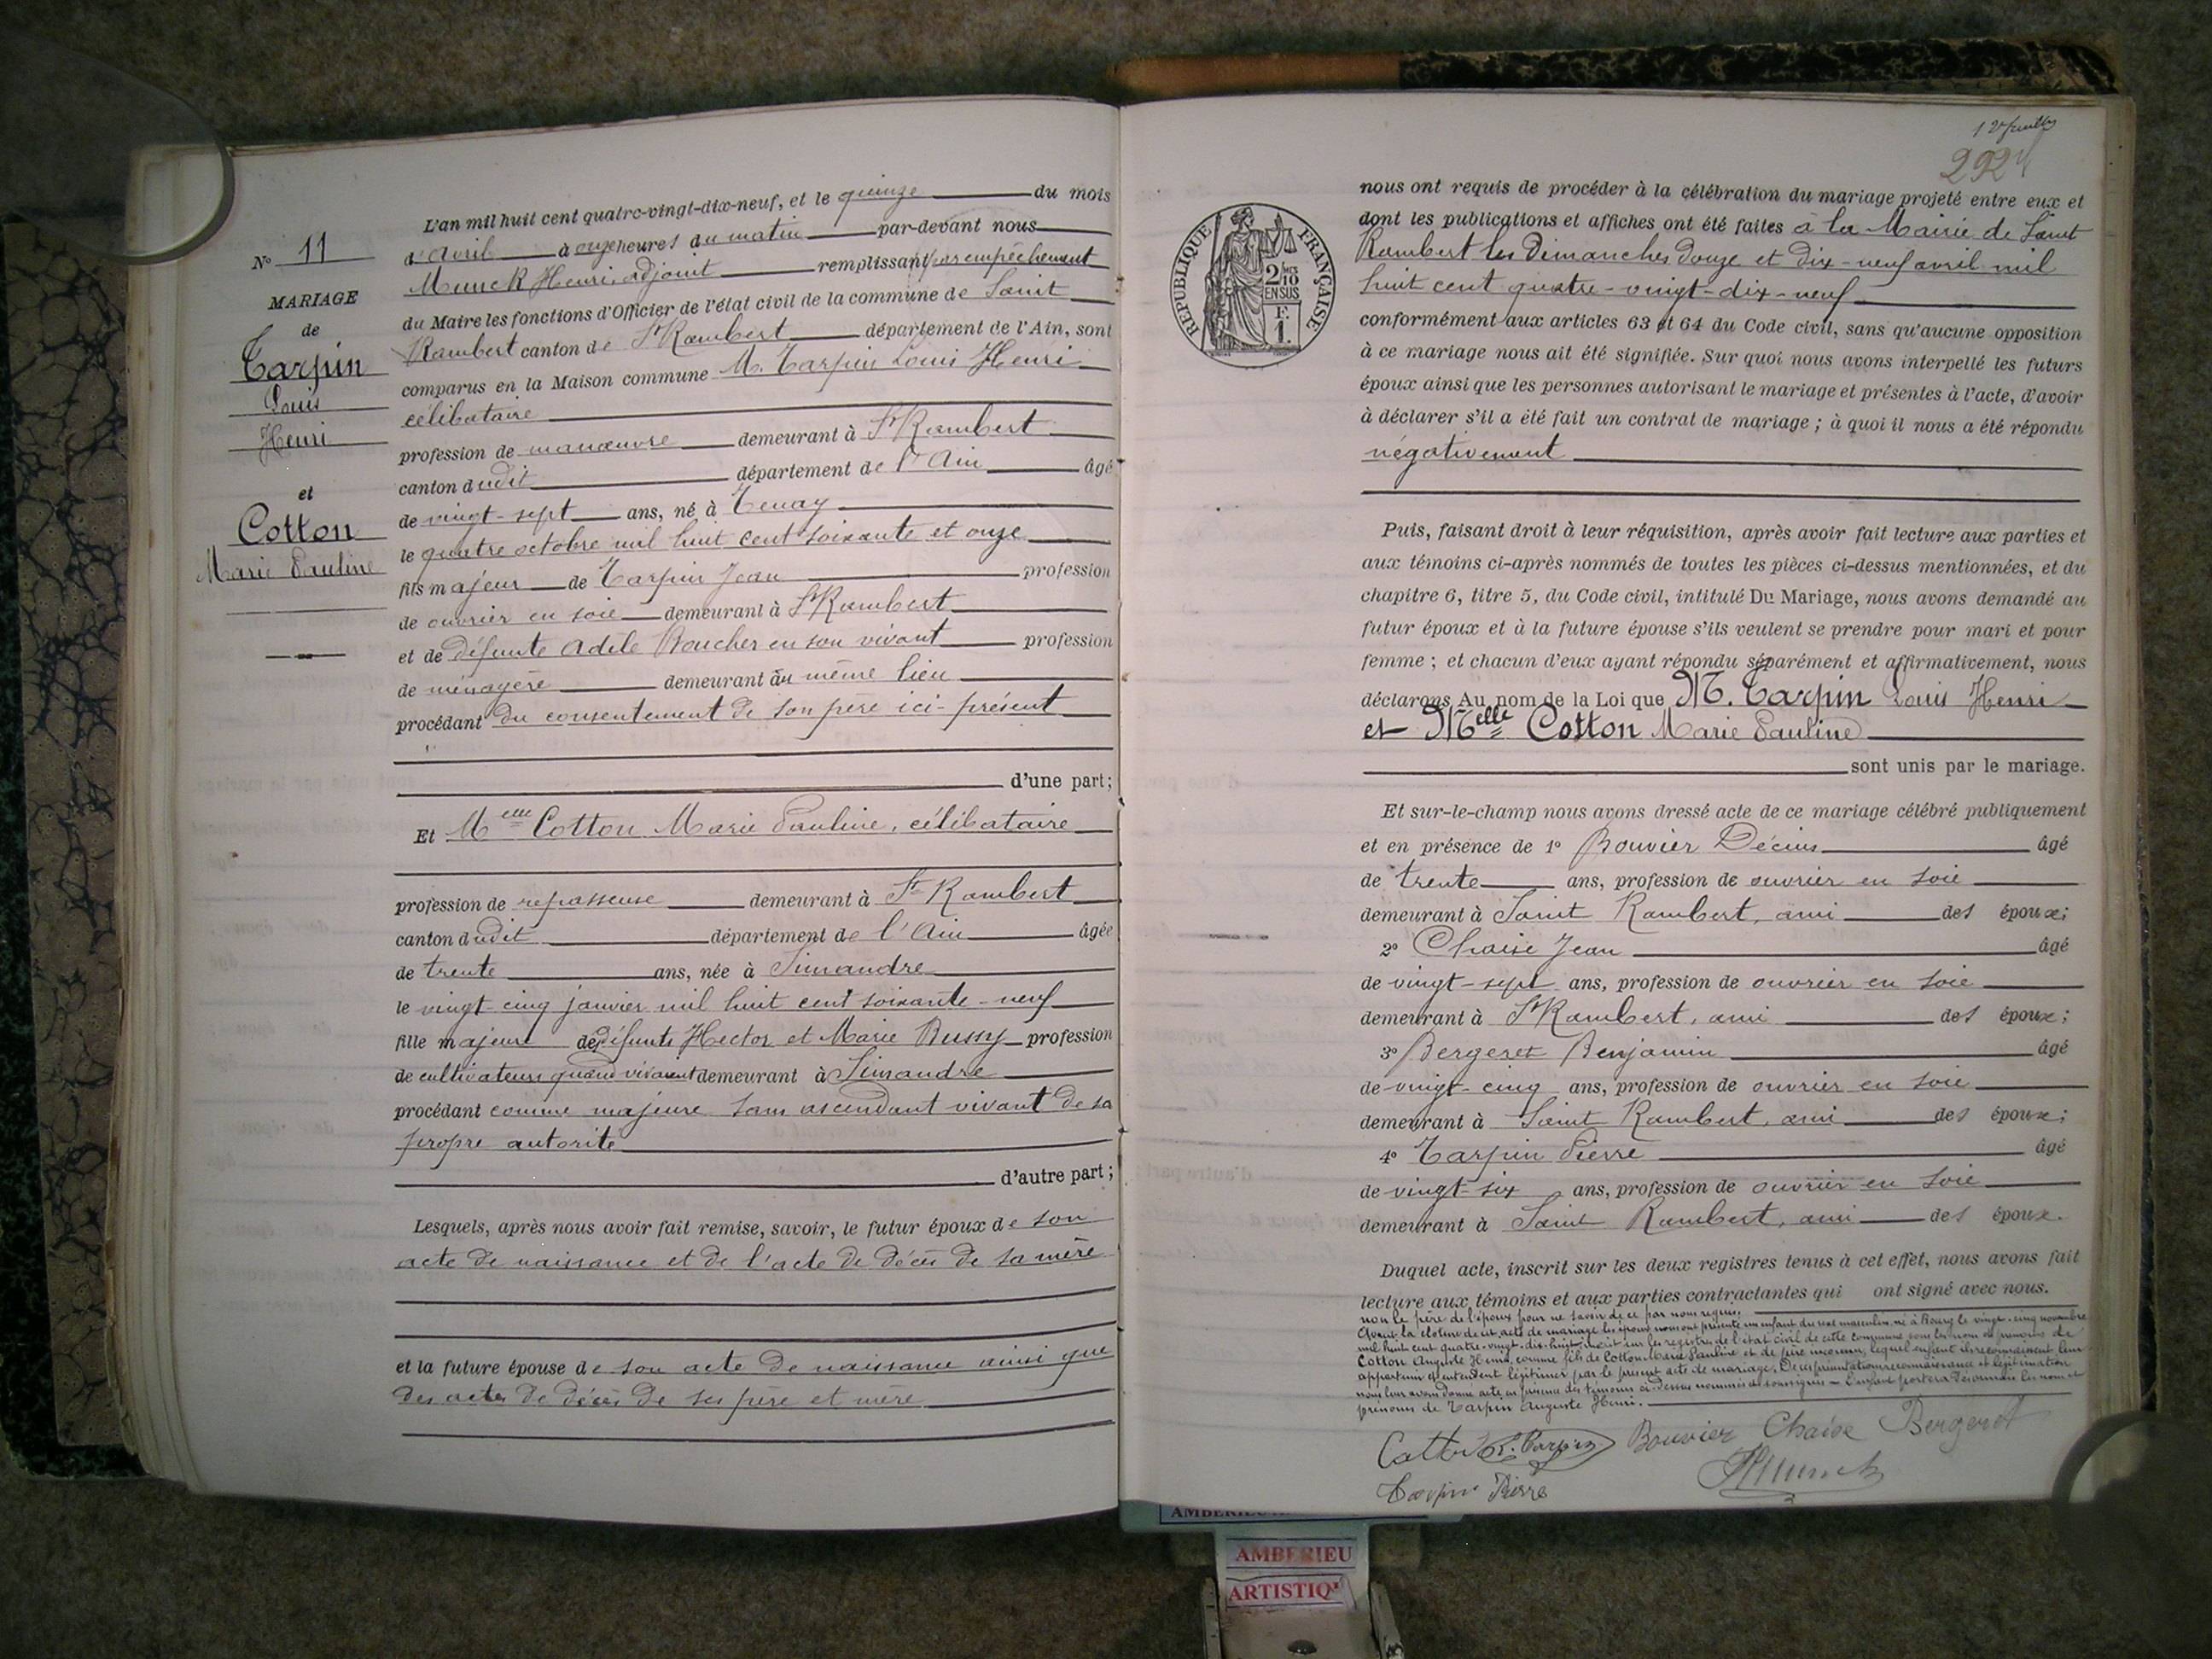 N° 11
MARIAGE
de
Tarpin
Louis
Henri
et
Cotton
Marie Pauline
L'an mil huit cent quatre-vingt-dix-neuf, et le quinze du mois
d'Avril à onze heures du matin par-devant nous
Munck Henri, adjoint remplissant par empêchement
du Maire les fonctions d'Officier de l'état civil de la commune de Saint
Rambert canton de St Rambert département de l'Ain, sont
comparus en la Maison commune M. Tarpin Louis Henri
célibataire
profession de manœuvre demeurant à St Rambert
canton dudit département de l'Ain âgé
de vingt-sept ans, né à Tenay
le quatre octobre mil huit cent soixante et onze
fils majeur de Tarpin Jean profession
de ouvrier en soie demeurant à St Rambert
et de défunte Adèle Boucher en son vivant profession
de ménagère demeurant au même lieu
procédant du consentement de son père ici-présent
d'une part;
Et Melle Cotton Marie Pauline, célibataire
profession de repasseuse demeurant à St Rambert
canton dudit département de l'Ain âgée
de trente ans, née à Simandre
le vingt cinq janvier mil huit cent soixante-neuf
fille majeure de défunts Hector et Marie Bussy profession
de cultivateurs quand vivaient demeurant à Simandre
procédant comme majeure sans ascendant vivant de sa
propre autorité
d'autre part;
Lesquels, après nous avoir fait remise, savoir, le futur époux de son
acte de naissance et de l'acte de décès de sa mère
et la future épouse de son acte de naissance ainsi que
des actes de décès de ses père et mère
292
RÉPUBLIQUE FRANÇAISE
2/10 EN SUS
F. 1.
nous ont requis de procéder à la célébration du mariage projeté entre eux et
dont les publications et affiches ont été faites à la Mairie de Saint
Rambert les Dimanches douze et dix-neuf avril mil
huit cent quatre-vingt-dix-neuf
conformément aux articles 63 et 64 du Code civil, sans qu'aucune opposition
à ce mariage nous ait été signifiée. Sur quoi nous avons interpellé les futurs
époux ainsi que les personnes autorisant le mariage et présentes à l'acte, d'avoir
à déclarer s'il a été fait un contrat de mariage ; à quoi il nous a été répondu
négativement
Puis, faisant droit à leur réquisition, après avoir fait lecture aux parties et
aux témoins ci-après nommés de toutes les pièces ci-dessus mentionnées, et du
chapitre 6, titre 5, du Code civil, intitulé Du Mariage, nous avons demandé au
futur époux et à la future épouse s'ils veulent se prendre pour mari et pour
femme ; et chacun d'eux ayant répondu séparément et affirmativement, nous
déclarons Au nom de la Loi que M. Tarpin Louis Henri
et Melle Cotton Marie Pauline
sont unis par le mariage.
Et sur-le-champ nous avons dressé acte de ce mariage célébré publiquement
et en présence de 1° Bouvier Décius âgé
de trente ans, profession de ouvrier en soie
demeurant à Saint Rambert, ami des époux;
2° Chaise Jean âgé
de vingt-sept ans, profession de ouvrier en soie
demeurant à St Rambert, ami des époux;
3° Bergeret Benjamin âgé
de vingt-cinq ans, profession de ouvrier en soie
demeurant à Saint Rambert, ami des époux;
4° Tarpin Pierre âgé
de vingt-six ans, profession de ouvrier en soie
demeurant à Saint Rambert, ami des époux.
Duquel acte, inscrit sur les deux registres tenus à cet effet, nous avons fait
lecture aux témoins et aux parties contractantes qui ont signé avec nous.
non le père de l'époux pour ne savoir de ce par nous requis.
Avant la cloture de cet acte de mariage les époux nous ont présenté un enfant du sexe masculin, né à Bourg le vingt-cinq novembre
mil huit cent quatre-vingt-dix-huit, inscrit sur les registres de l'état civil de cette commune sous les nom et prénoms de
Cotton Auguste Henri, comme fils de Cotton Marie Pauline et de père inconnu, lequel enfant ils reconnaissent leur
appartenir et entendent légitimer par le présent acte de mariage. De ces présentation reconnaissance et légitimation
nous leur avons donné acte en présence des témoins ci-dessus nommés et soussignés - L'enfant portera désormais les nom et
prénoms de Tarpin Auguste Henri.
Cotton L. Tarpin Bouvier Chaise Bergeret
Tarpin Pierre HMunck
AMBERIEU
ARTISTIQ